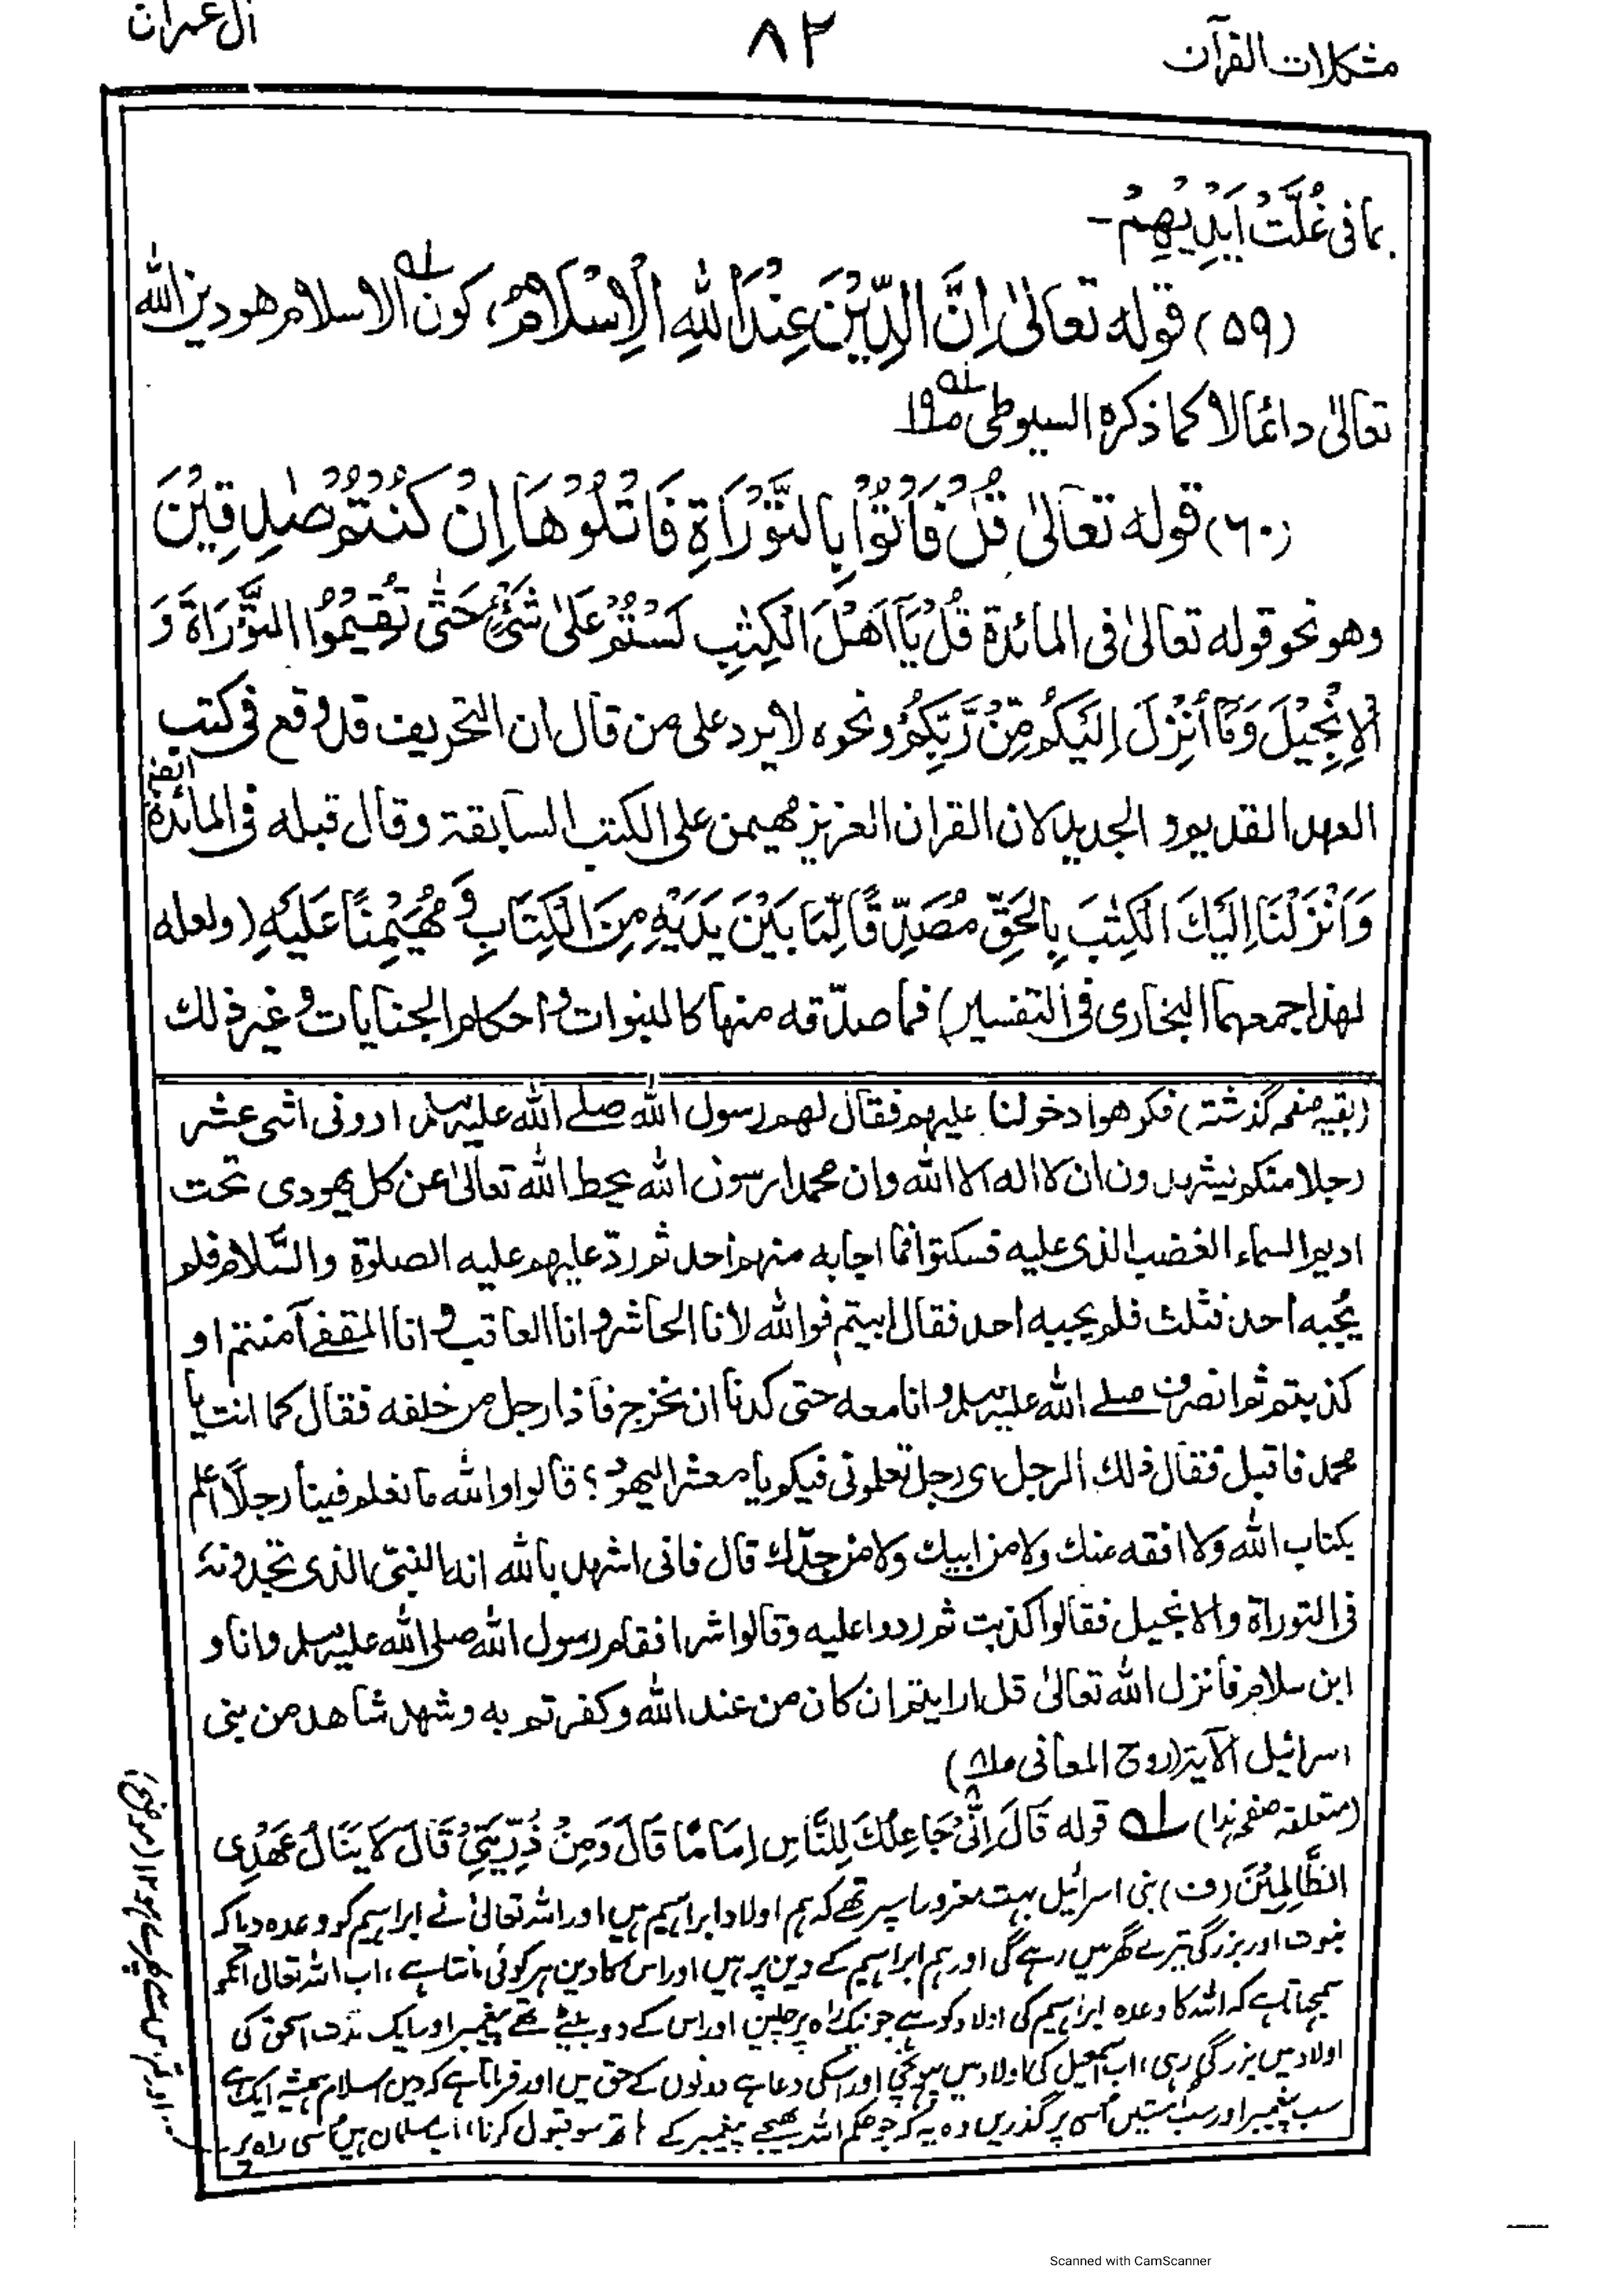 مشكلات القرآن
٨٢
آل عمران
بما فى غُلَّتْ اَيْدِيْهِمْ-
(٥٩) قوله تعالىٰ اِنَّ الدِّيْنَ عِنْدَ اللهِ الْاِسْلَامُ، كون الاسلام هو دين الله
تعالىٰ دائما لا كما ذكره السيوطى
(٦٠) قوله تعالىٰ قُلْ فَأْتُوْا بِالتَّوْرَاةِ فَاتْلُوْهَا اِنْ كُنْتُمْ صٰدِقِيْنَ
وهو نحو قوله تعالىٰ فى المائدة قُلْ يَآ اَهْلَ الْكِتٰبِ لَسْتُمْ عَلىٰ شَيْءٍ حَتّٰى تُقِيْمُوا التَّوْرَاةَ وَ
الْاِنْجِيْلَ وَمَآ اُنْزِلَ اِلَيْكُمْ مِّنْ رَّبِّكُمْ ونحوه لا يرد على من قال ان التحريف قد وقع فى كتب
العهد القديم و الجديد لان القران العزيز مهيمن على الكتب السابقة وقال قبله فى المائدة ايضا
وَاَنْزَلْنَا اِلَيْكَ الْكِتٰبَ بِالْحَقِّ مُصَدِّقًا لِّمَا بَيْنَ يَدَيْهِ مِنَ الْكِتَابِ وَ مُهَيْمِنًا عَلَيْهِ (ولعله
لهذا جمعهما البخارى فى التفسير) فما صدّقه منها كالنبوات و احكام الجنايات و غير ذلك
(بقيه صفحه گذشته) فكرهوا دخولنا عليهم فقال لهم رسول الله صلے الله عليه وسلم ارونى اثنى عشر
رجلا منكم يشهدون ان لا اله الا الله وان محمدا رسول الله يحط الله تعالىٰ عن كل يهودى تحت
اديم السماء الغضب الذى عليه فسكتوا فما اجابه منهم احد ثم ردّ عليهم عليه الصلوة والسَّلام فلم
يُجبه احد فثلث فلم يجبه احد فقال ابيتم فوالله لانا الحاشر و انا العاقب و انا المقفے آمنتم او
كذبتم ثم انصرف صلے الله عليه وسلم و انا معه حتى كدنا ان نخرج فاذا رجل من خلفه فقال كما انت يا
محمد فاقبل فقال ذلك الرجل اى رجل تعلمونى فيكم يا معشر اليهود؟ قالوا والله ما نعلم فينا رجلًا اعلم
بكتاب الله ولا افقه منك ولا من ابيك ولا من جدّك قال فانى اشهد بالله انه النبىّ الذى تجدونه
فى التوراة والانجيل فقالوا كذبت ثم ردوا عليه وقالوا شرا فقام رسول الله صلى الله عليه وسلم وانا و
ابن سلام فانزل الله تعالىٰ قل ارايتم ان كان من عند الله وكفرتم به وشهد شاهد من بنى
اسرائيل الآية (روح المعانى
(متعلقه صفحه ہذا) لہ قوله قَالَ اِنِّىْ جَاعِلُكَ لِلنَّاسِ اِمَامًا قَالَ وَمِنْ ذُرِّيَّتِىْ قَالَ لَا يَنَالُ عَهْدِى
الظَّالِمِيْنَ (ف) بنی اسرائیل بہت مغرور اسپر تھے کہ ہم اولاد ابراہیم ہیں اور اللہ تعالیٰ نے ابراہیم کو وعدہ دیا کہ
نبوت اور بزرگی تیرے گھر میں رہے گی اور ہم ابراہیم کے دین پر ہیں اور اس کا دین ہر کوئی مانتا ہے، اب اللہ تعالیٰ انکو
سمجہاتا ہے کہ اللہ کا وعدہ ابراہیم کی اولاد کو ہے جو نیک راہ پر چلیں اور اس کے دو بیٹے تھے پیغمبر اور ایک مدت اسحٰق کی
اولاد میں بزرگی رہی، اب اسمٰعیل کی اولاد میں پہونچی اور اسکی دعا ہے دونوں کے حق میں اور فرماتا ہے کہ دین اسلام ہمیشہ ایک ہے
سب پیغمبر اور سب امتیں اسی پر گذریں وہ یہ کہ جو حکم اللہ بھیجے پیغمبر کے ہاتھ سو قبول کرنا، اب مسلمان ہیں اسی راہ پر
Scanned with CamScanner